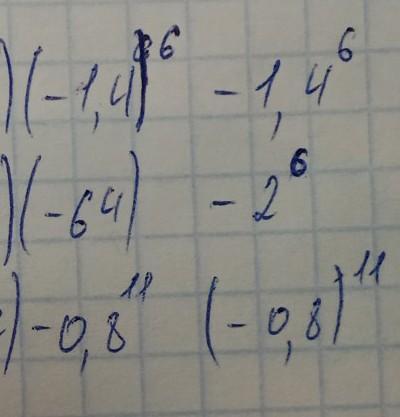 ) (-1,4)⁶ -1,4⁶
) (-64) -2⁶
) -0,8¹¹ (-0,8)¹¹